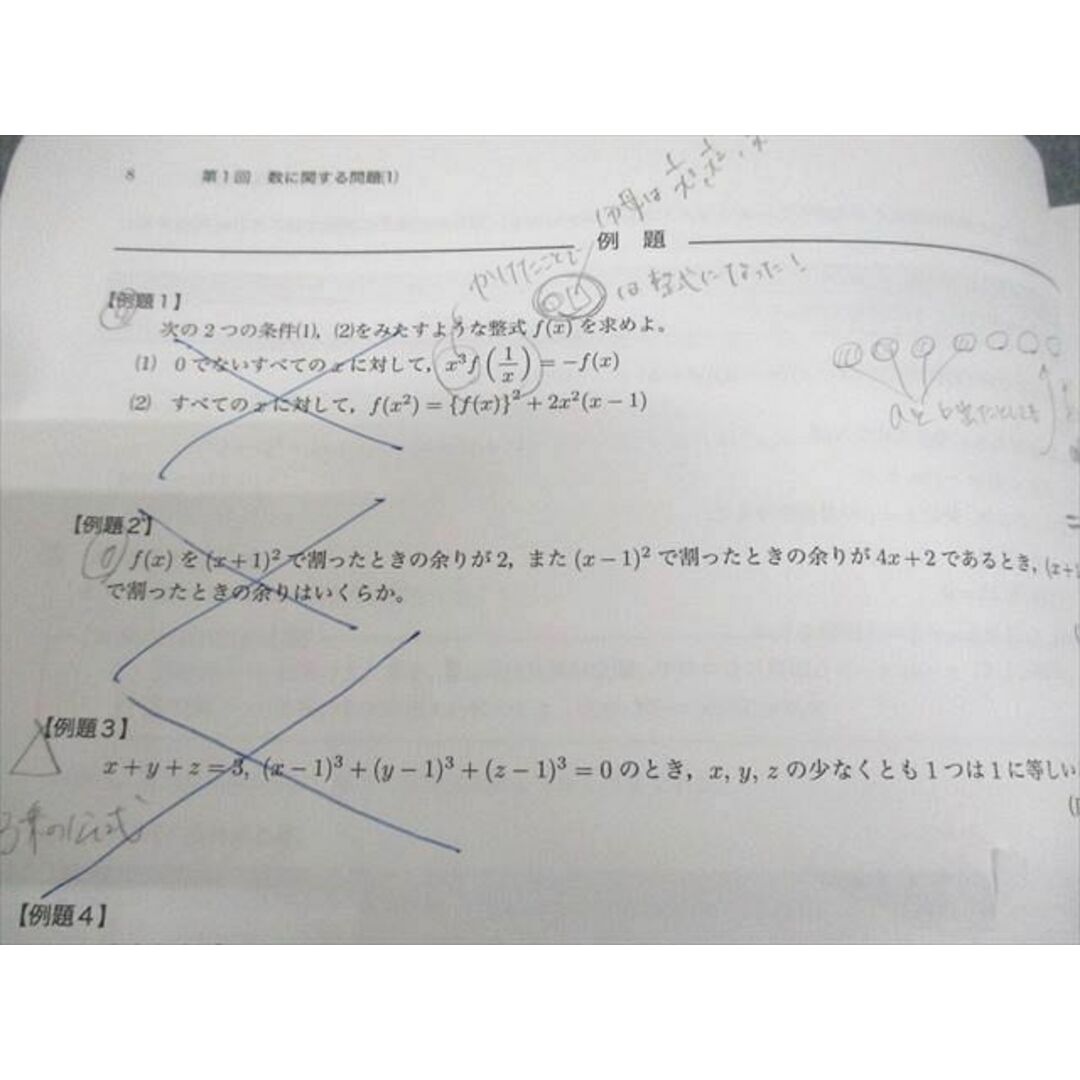 8 第1回 数に関する問題(1)
分母は 1/x³, 1/x²,
例 題
かけたことで
は整式になった!
【例題1】
次の2つの条件(1), (2)をみたすような整式 f(x) を求めよ。
(1) 0でないすべての x に対して, x³f(1/x) = −f(x)
(2) すべての x に対して, f(x²) = {f(x)}² + 2x²(x − 1)
aと
【例題2】
f(x) を (x+1)² で割ったときの余りが 2, また (x−1)² で割ったときの余りが 4x+2 であるとき,
で割ったときの余りはいくらか。
【例題3】
x+y+z=3, (x−1)³+(y−1)³+(z−1)³=0 のとき, x, y, z の少なくとも1つは1に等しい
3乗の公式
【例題4】